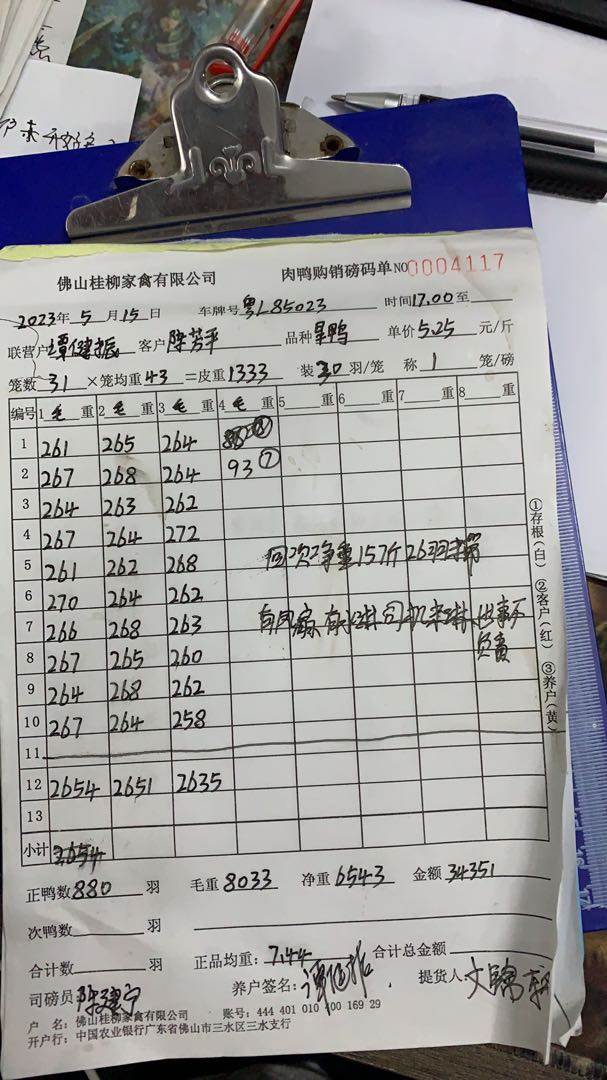 佛山桂柳家禽有限公司 肉鸭购销磅码单 NO 0004117
2023年 5 月 15 日 车牌号 粤L85023 时间 17.00 至
联营户 谭健振 客户 陈芳平 品种 旱鸭 单价 5.25 元/斤
笼数 31 ×笼均重 43 =皮重 1333 装 30 羽/笼 称 1 笼/磅
编号 1 毛 重 2 毛 重 3 毛 重 4 毛 重 5 重 6 重 7 重 8 重
1 261 265 264
2 267 268 264 93 ⑦
3 264 263 262
4 267 264 272
5 261 262 268
回次净重157斤26羽
6 270 264 262
7 266 268 263
有风扇 有水淋 司机来淋 出事不
负责
8 267 265 260
9 264 268 262
10 267 264 258
11
12 2654 2651 2635
13
小计 2654
正鸭数 880 羽 毛重 8033 净重 6543 金额 34351
次鸭数 羽
合计数 羽 正品均重: 7.44 合计总金额
司磅员 陈建宁 养户签名: 提货人
户 名: 佛山桂柳家禽有限公司 账号: 444 401 010 400 169 29
开户行: 中国农业银行广东省佛山市三水区三水支行
①存根(白) ②客户(红) ③养户(黄)